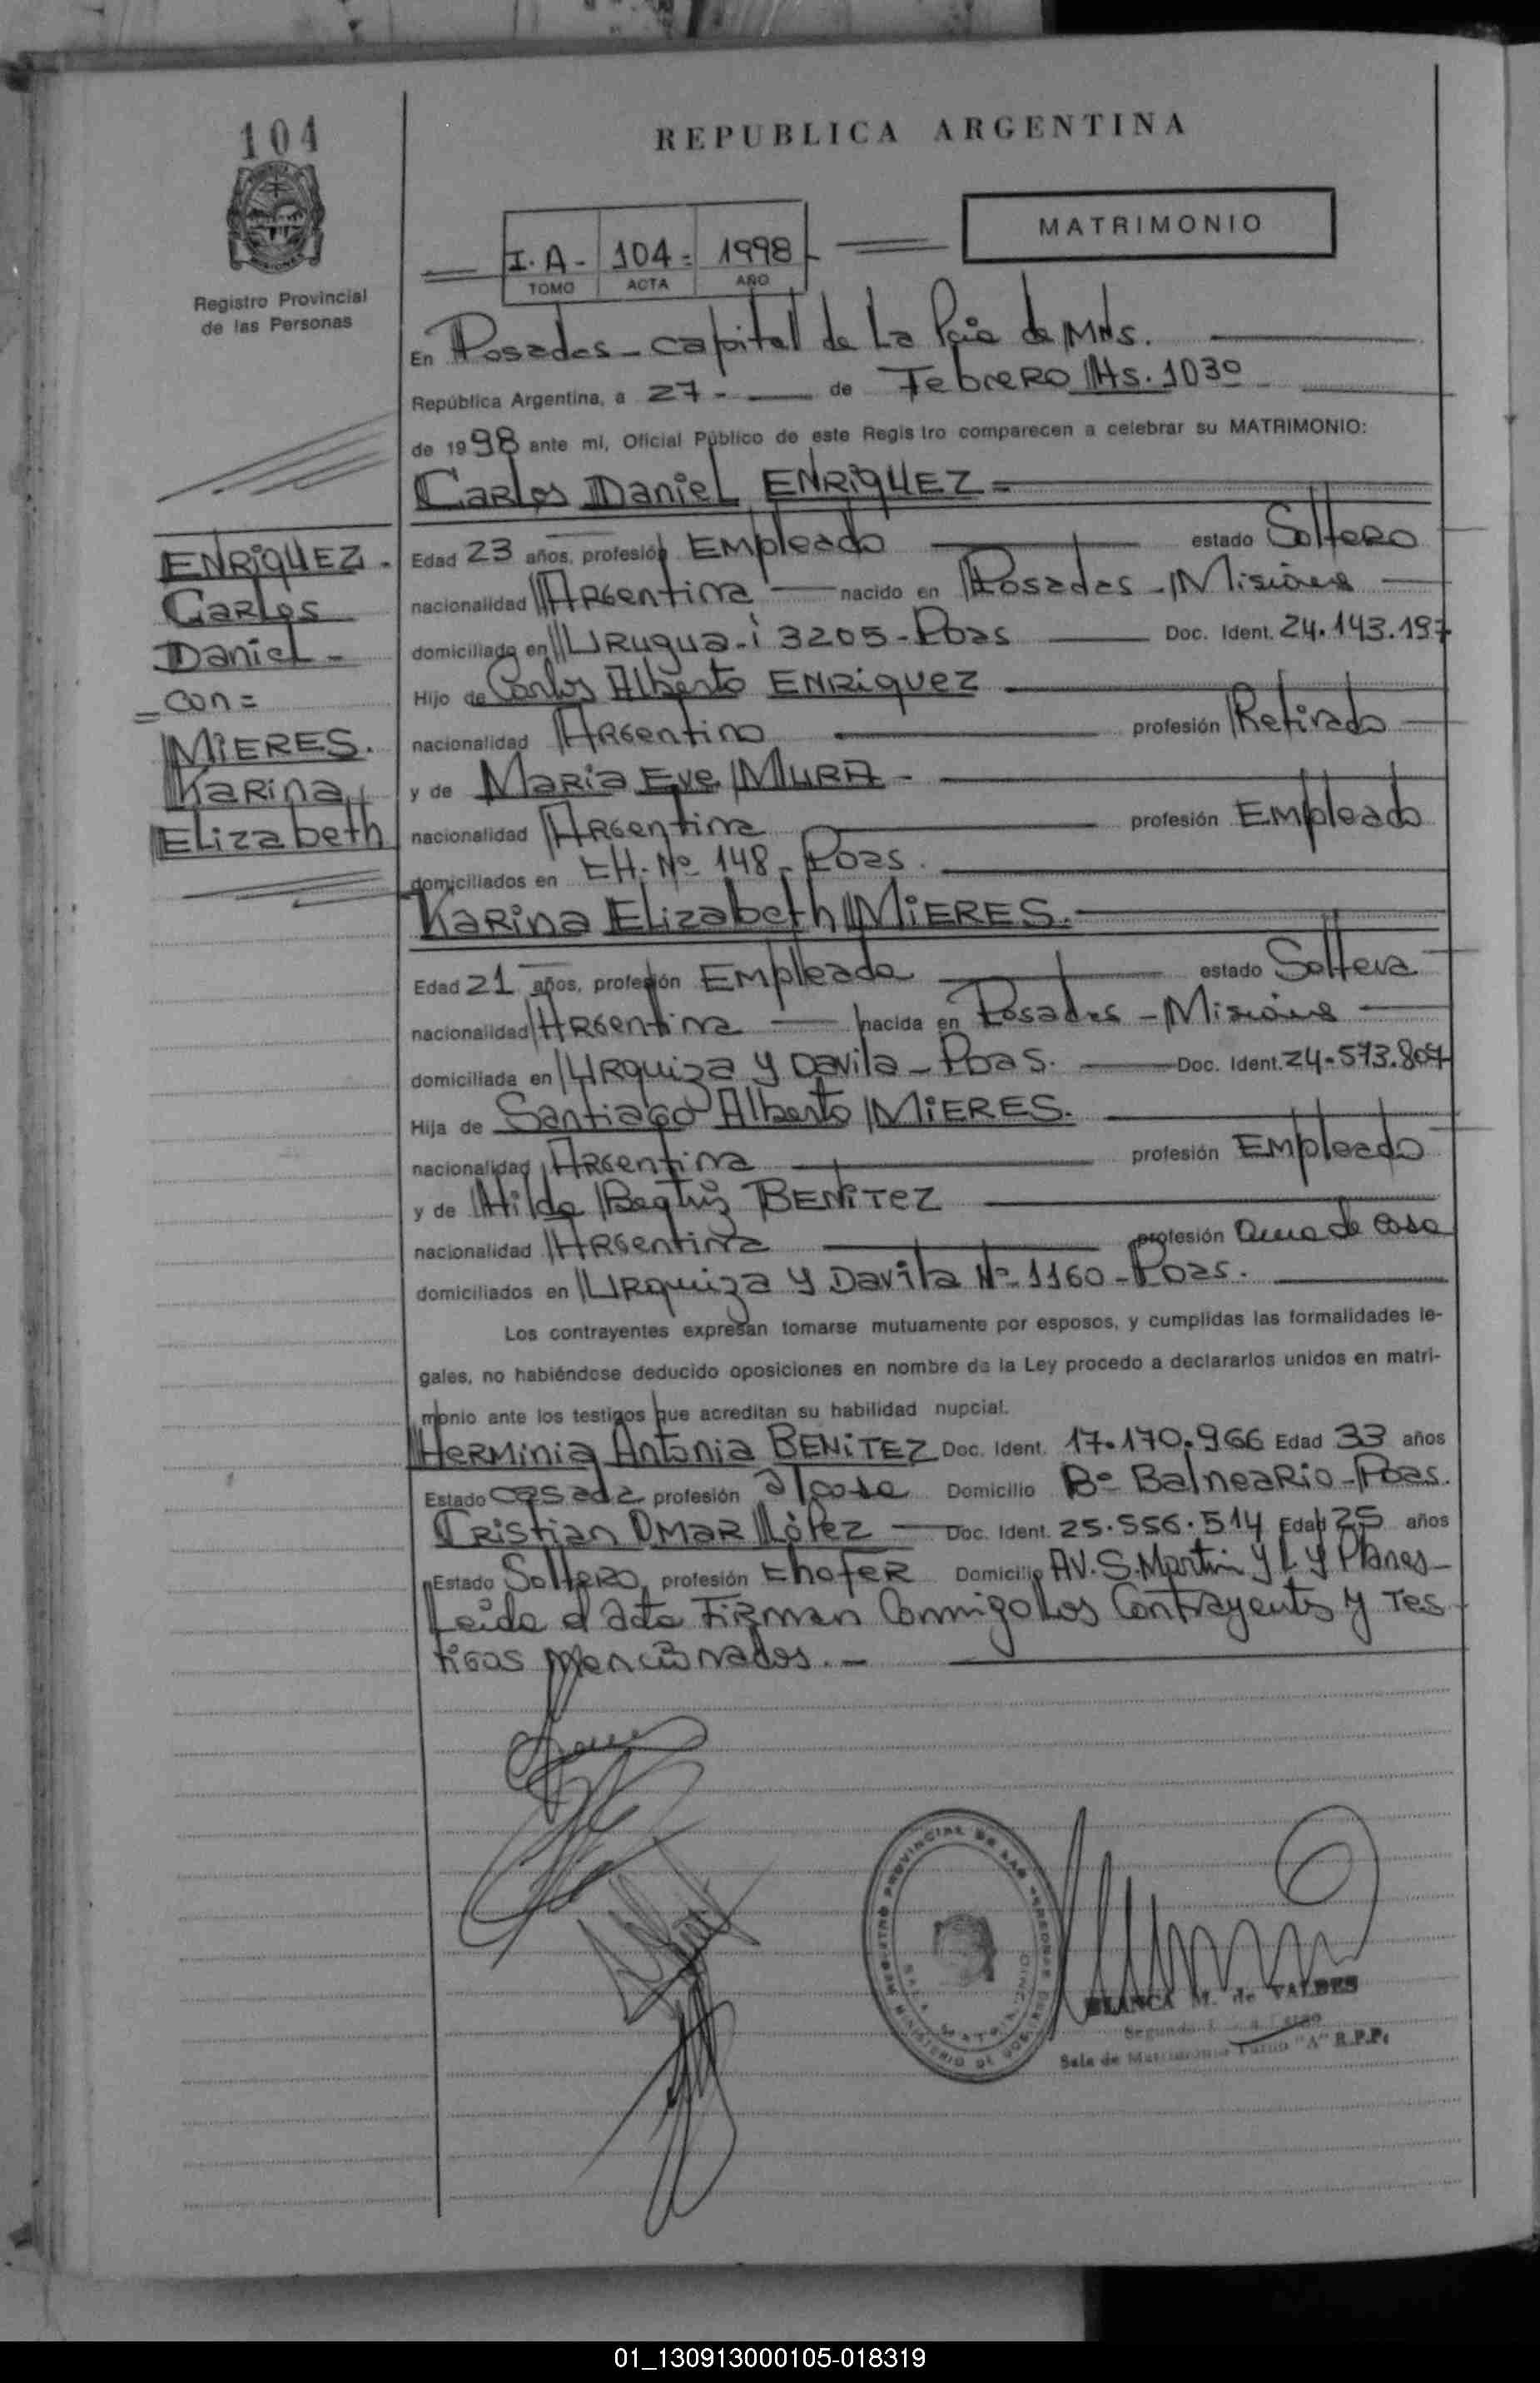 104
REPUBLICA ARGENTINA
MATRIMONIO
I. A - 104 = 1998
TOMO ACTA AÑO
Registro Provincial
de las Personas
En Posadas - capital de La Pcia de Mns.
República Argentina, a 27 - de Febrero Hs. 1030
de 1998 ante mi, Oficial Público de este Regis tro comparecen a celebrar su MATRIMONIO:
Carlos Daniel ENRIQUEZ =
Edad 23 años, profesión Empleado estado Soltero
nacionalidad Argentina nacido en Posadas - Misiones
domiciliado en Urugua-i 3205 - Pdas Doc. Ident. 24.143.197
Hijo de Carlos Alberto ENRIQUEZ
nacionalidad Argentino profesión Retirado
y de Maria Eve MURA -
nacionalidad Argentina profesión Empleado
domiciliados en CH. Nº 148 - Pdas.
Karina Elizabeth MIERES.
Edad 21 años, profesión Empleada estado Soltera
nacionalidad Argentina nacida en Posadas - Misiones
domiciliada en Urquiza y Davila - Pdas. Doc. Ident. 24.573.807
Hija de Santiago Alberto MIERES.
nacionalidad Argentina profesión Empleado
y de Hilda Beatriz BENITEZ
nacionalidad Argentina profesión ama de casa
domiciliados en Urquiza y Davila Nº 1160 - Pdas.
Los contrayentes expresan tomarse mutuamente por esposos, y cumplidas las formalidades le-
gales, no habiéndose deducido oposiciones en nombre de la Ley procedo a declararlos unidos en matri-
monio ante los testigos que acreditan su habilidad nupcial.
Herminia Antonia BENITEZ Doc. Ident. 17.170.966 Edad 33 años
Estado casada profesión Domicilio Bº Balneario - Pdas.
Cristian Omar López Doc. Ident. 25.556.514 Edad 25 años
Estado Soltero, profesión Chofer Domicilio AV. S. Martin y L y Planes
Leida el acta Firman Conmigo Los Contrayentes y Tes
tigos Mencionados. -
ENRIQUEZ -
Carlos
Daniel -
= con =
MIERES.
Karina
Elizabeth
REGISTRO PROVINCIAL DE LAS PERSONAS
MINISTERIO DE GOB
BLANCA M. de VALDES
Sala de Matrimonio Turno "A" R.P.P.
01_130913000105-018319